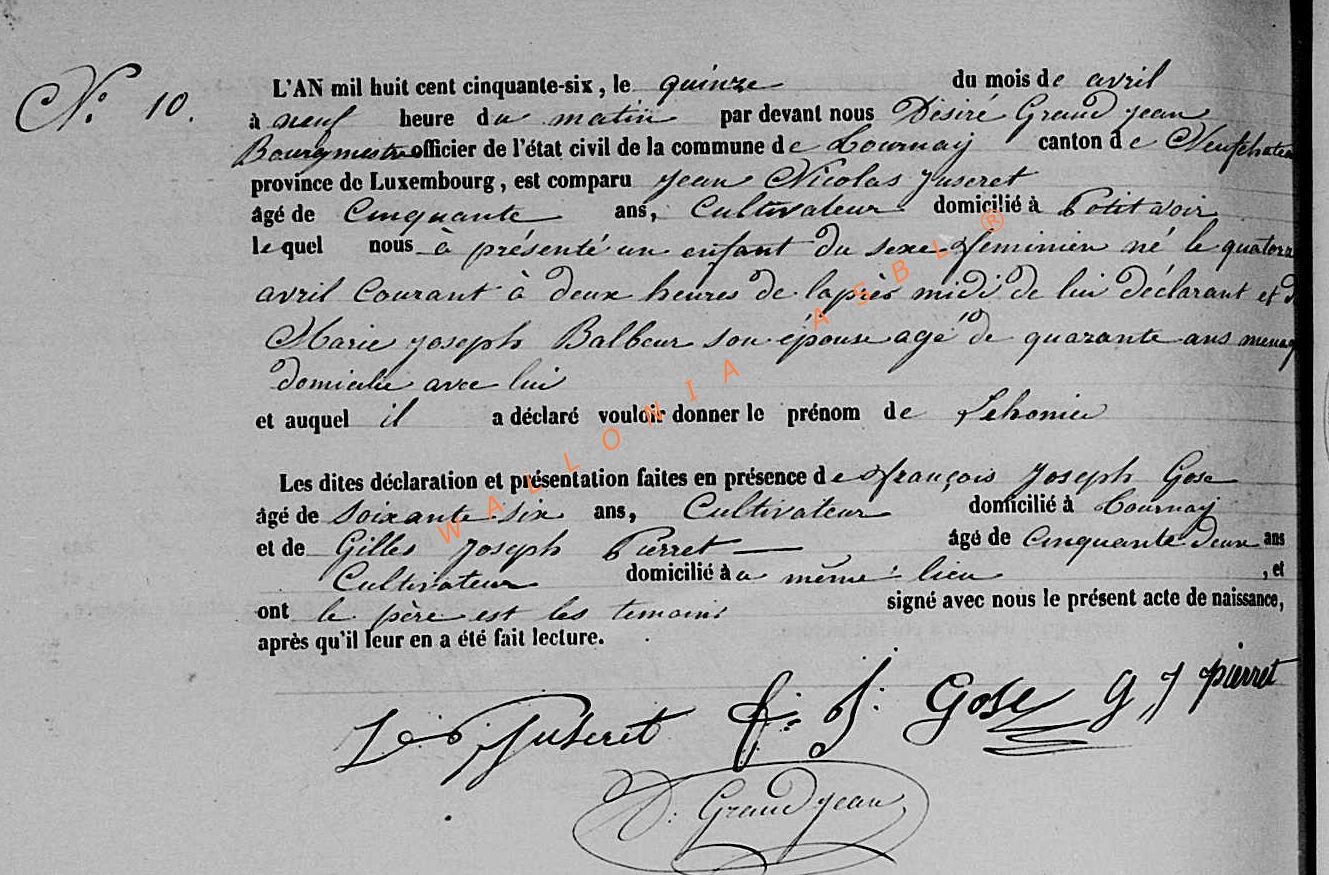 N.º 10.
L'AN mil huit cent cinquante-six, le quinze du mois de avril
à neuf heure du matin par devant nous Désiré Grand jean
Bourgmestre officier de l'état civil de la commune de Tournay canton de Neufchatea
province de Luxembourg, est comparu Jean Nicolas Juseret
âgé de Cinquante ans, Cultivateur domicilié à Petit voir
lequel nous à présenté un enfant du sexe féminien né le quatorz
avril Courant à deux heures de laprès midi de lui déclarant et d
Marie Joseph Balbeur son épouse agé de quarante ans menag
domicilie avec lui
et auquel il a déclaré vouloir donner le prénom de
Les dites déclaration et présentation faites en présence de françois Joseph Gose
âgé de Soixante six ans, Cultivateur domicilié à Tournay
et de Gilles Joseph Pierret âgé de Cinquante deux ans
Cultivateur domicilié à a même lieu , et
ont le père est les temoins signé avec nous le présent acte de naissance,
après qu'il leur en a été fait lecture.
Juseret f. J. Gose g J pierret
D. Grand jean
WALLONIA ASBL ®